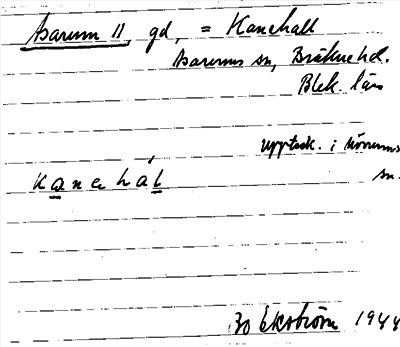 Asarum 11, gd, = Kanehall
Asarums sn, Bräkne hd.
Blek. län
Uppteck. i Mörrums
sn.
kanehal
Bo Ekström 1944